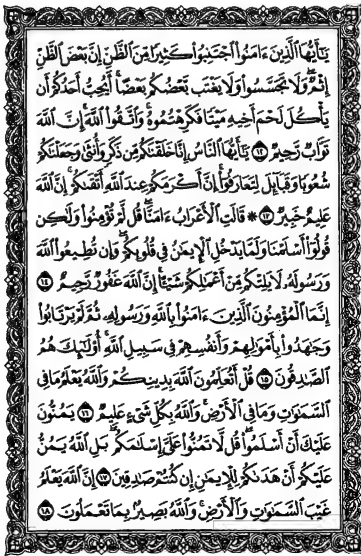 يَٰٓأَيُّهَا ٱلَّذِينَ ءَامَنُوا۟ ٱجْتَنِبُوا۟ كَثِيرًا مِّنَ ٱلظَّنِّ إِنَّ بَعْضَ ٱلظَّنِّ
إِثْمٌ وَلَا تَجَسَّسُوا۟ وَلَا يَغْتَب بَّعْضُكُم بَعْضًا أَيُحِبُّ أَحَدُكُمْ أَن
يَأْكُلَ لَحْمَ أَخِيهِ مَيْتًا فَكَرِهْتُمُوهُ وَٱتَّقُوا۟ ٱللَّهَ إِنَّ ٱللَّهَ
تَوَّابٌ رَّحِيمٌ ١٢ يَٰٓأَيُّهَا ٱلنَّاسُ إِنَّا خَلَقْنَٰكُم مِّن ذَكَرٍ وَأُنثَىٰ وَجَعَلْنَٰكُمْ
شُعُوبًا وَقَبَآئِلَ لِتَعَارَفُوٓا۟ إِنَّ أَكْرَمَكُمْ عِندَ ٱللَّهِ أَتْقَىٰكُمْ إِنَّ ٱللَّهَ
عَلِيمٌ خَبِيرٌ ١٣ ۞ قَالَتِ ٱلْأَعْرَابُ ءَامَنَّا قُل لَّمْ تُؤْمِنُوا۟ وَلَٰكِن
قُولُوٓا۟ أَسْلَمْنَا وَلَمَّا يَدْخُلِ ٱلْإِيمَٰنُ فِى قُلُوبِكُمْ وَإِن تُطِيعُوا۟ ٱللَّهَ
وَرَسُولَهُۥ لَا يَلِتْكُم مِّنْ أَعْمَٰلِكُمْ شَيْـًٔا إِنَّ ٱللَّهَ غَفُورٌ رَّحِيمٌ ١٤
إِنَّمَا ٱلْمُؤْمِنُونَ ٱلَّذِينَ ءَامَنُوا۟ بِٱللَّهِ وَرَسُولِهِۦ ثُمَّ لَمْ يَرْتَابُوا۟
وَجَٰهَدُوا۟ بِأَمْوَٰلِهِمْ وَأَنفُسِهِمْ فِى سَبِيلِ ٱللَّهِ أُو۟لَٰٓئِكَ هُمُ
ٱلصَّٰدِقُونَ ١٥ قُلْ أَتُعَلِّمُونَ ٱللَّهَ بِدِينِكُمْ وَٱللَّهُ يَعْلَمُ مَا فِى
ٱلسَّمَٰوَٰتِ وَمَا فِى ٱلْأَرْضِ وَٱللَّهُ بِكُلِّ شَىْءٍ عَلِيمٌ ١٦ يَمُنُّونَ
عَلَيْكَ أَنْ أَسْلَمُوا۟ قُل لَّا تَمُنُّوا۟ عَلَىَّ إِسْلَٰمَكُم بَلِ ٱللَّهُ يَمُنُّ
عَلَيْكُمْ أَنْ هَدَىٰكُمْ لِلْإِيمَٰنِ إِن كُنتُمْ صَٰدِقِينَ ١٧ إِنَّ ٱللَّهَ يَعْلَمُ
غَيْبَ ٱلسَّمَٰوَٰتِ وَٱلْأَرْضِ وَٱللَّهُ بَصِيرٌۢ بِمَا تَعْمَلُونَ ١٨